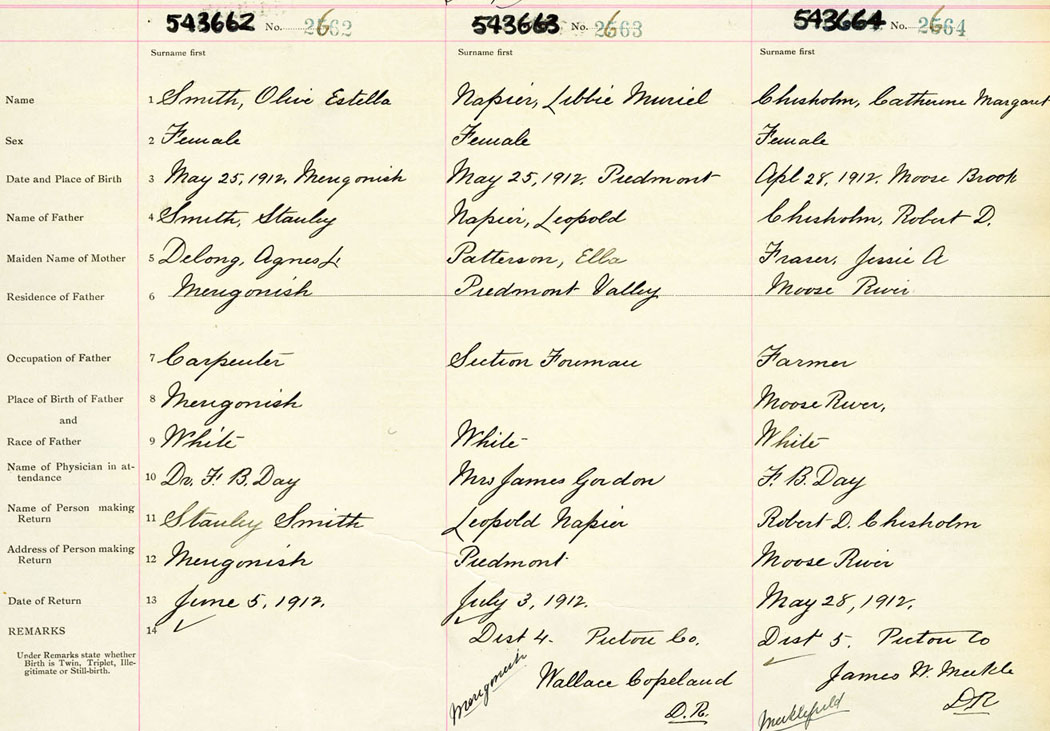 543662 No. 2662 543663 No. 2663 543664 No. 2664
Surname first Surname first Surname first
Name 1 Smith, Olive Estella Napier, Libbie Muriel Chisholm, Catherine Margaret
Sex 2 Female Female Female
Date and Place of Birth 3 May 25, 1912. Merigonish May 25, 1912. Piedmont Apl 28, 1912. Moose Brook
Name of Father 4 Smith, Stanley Napier, Leopold Chisholm, Robert D.
Maiden Name of Mother 5 Delong, Agnes L. Patterson, Ella Fraser, Jessie A
Residence of Father 6 Merigonish Piedmont Valley Moose River
Occupation of Father 7 Carpenter Section Foreman Farmer
Place of Birth of Father 8 Merigonish Moose River,
and
Race of Father 9 White White White
Name of Physician in at-
tendance 10 Dr. F. B. Day Mrs James Gordon F. B. Day
Name of Person making
Return 11 Stanley Smith Leopold Napier Robert D. Chisholm
Address of Person making
Return 12 Merigonish Piedmont Moose River
Date of Return 13 June 5, 1912. July 3, 1912. May 28, 1912.
REMARKS 14 Dist 4. Pictou Co. Dist 5. Pictou Co
Under Remarks state whether
Birth is Twin, Triplet, Ille-
gitimate or Still-birth.
Merigonish Wallace Copeland James W. Meikle
D.R. Meiklefield DR